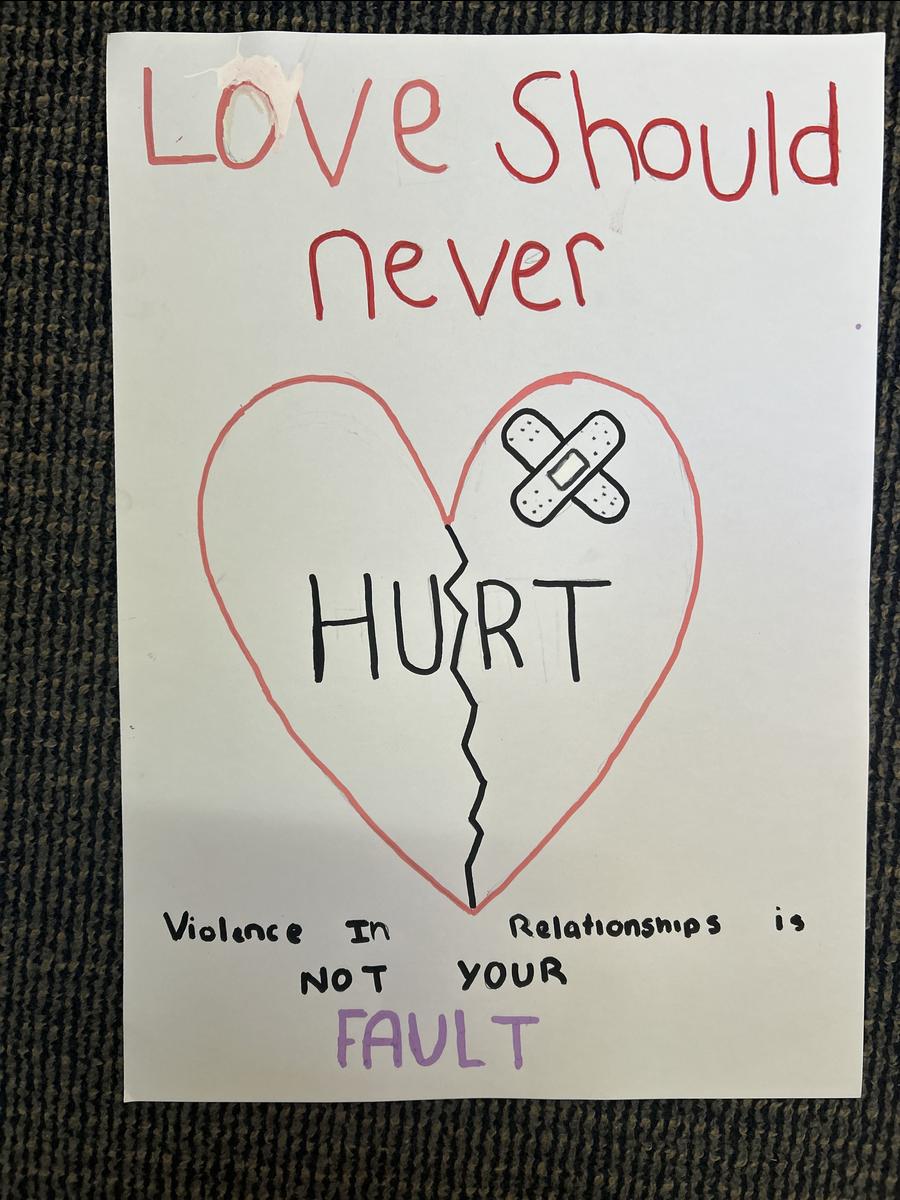 LOVe Should
never
HURT
Violence In Relationships is
NOT YOUR
FAULT